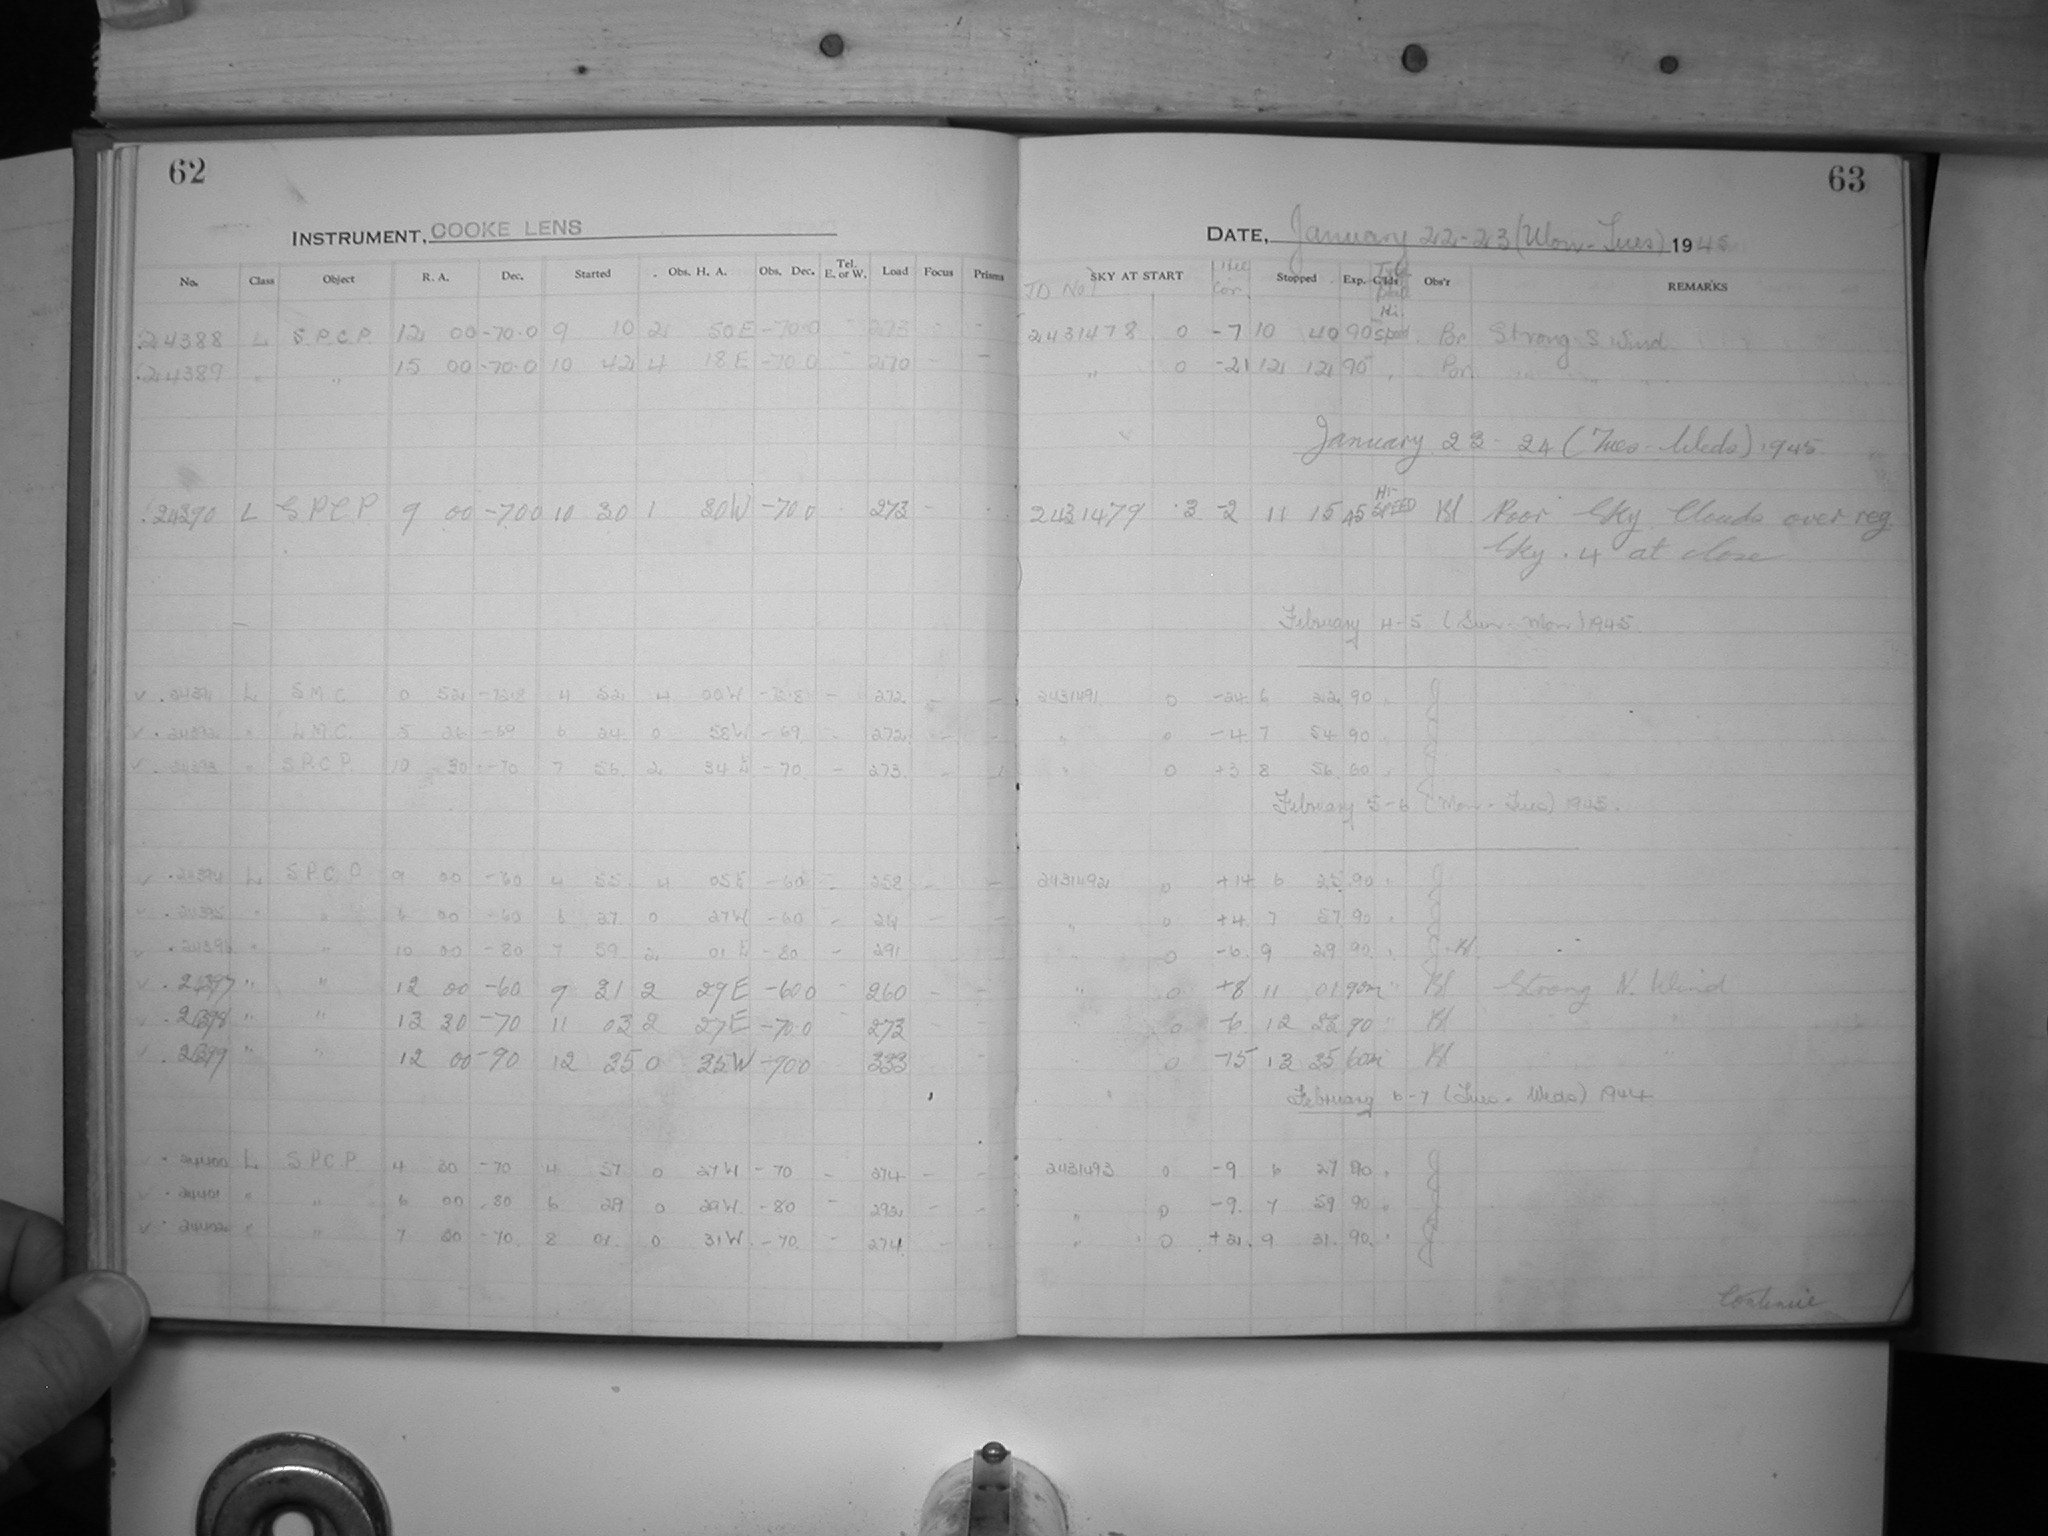 62
INSTRUMENT, COOKE LENS
No. Class Object R. A. Dec. Started Obs. H. A. Obs. Dec. Tel. E. or W. Load Focus Prisms
24388 L S.P.C.P. 12 00 -70.0 9 10 2 50 E -70.0 - 273 - -
24389 " " 15 00 -70.0 10 42 4 18 E -70.0 - 270 - -
24390 L S P C P 9 00 -70 0 10 30 1 30 W -70 0 273 -
24391 L S.M.C. 0 52 -72.8 4 52 4 00 W -72.8 - 272 - -
24392 " L.M.C. 5 26 -69 6 24 0 58 W -69 - 272 - -
24393 " S.P.C.P. 10 30 -70 7 56 2 34 E -70 - 273 - -
24394 L S.P.C.P. 9 00 -60 4 55 4 05 E -60 - 258 - -
24395 " " 6 00 -60 6 27 0 27 W -60 - 261 - -
24396 " " 10 00 -80 7 59 2 01 E -80 - 291 - -
24397 " " 12 00 -60 9 31 2 29 E -60 0 260 - -
24398 " " 13 30 -70 11 03 2 27 E -70.0 273 - -
24399 " " 12 00 -90 12 35 0 35 W -90 0 333 -
24400 L S.P.C.P. 4 30 -70 4 57 0 27 W -70 - 274 - -
24401 " " 6 00 -80 6 29 0 29 W. -80 - 292 - -
24402 " " 7 30 -70. 8 01. 0 31 W. -70. - 274. - -
63
DATE, January 22-23 (Mon-Tues) 1945
JD No. SKY AT START Stopped Exp. Clds Obs'r REMARKS
2431478 0 -7 10 40 90 Hi Speed Br Strong S Wind
" 0 -21 12 12 90 " " " "
January 23-24 (Tues-Weds) 1945
2431479 .3 -2 11 15 45 HI-SPEED Bl Poor Sky Clouds over reg
Sky .4 at close
February 4-5 (Sun-Mon) 1945
2431491 0 -24 6 22 90 " J
" 0 -4 7 54 90 " J
" 0 +3 8 56 60 " J
February 5-6 (Mon-Tues) 1945.
2431492 0 +14 6 25 90 " J
" 0 +4 7 57 90 " J
0 -6 9 29 90 " J-Bl
" 0 +8 11 01 90m " Bl Strong N. Wind
0 -6 12 33 90 " Bl "
0 -15 13 35 60m Bl "
February 6-7 (Tues-Weds) 1944
2431493 0 -9 6 27 90 " J
" 0 -9. 7 59 90 " J
" 0 +2. 9 31. 90. " J
Continue